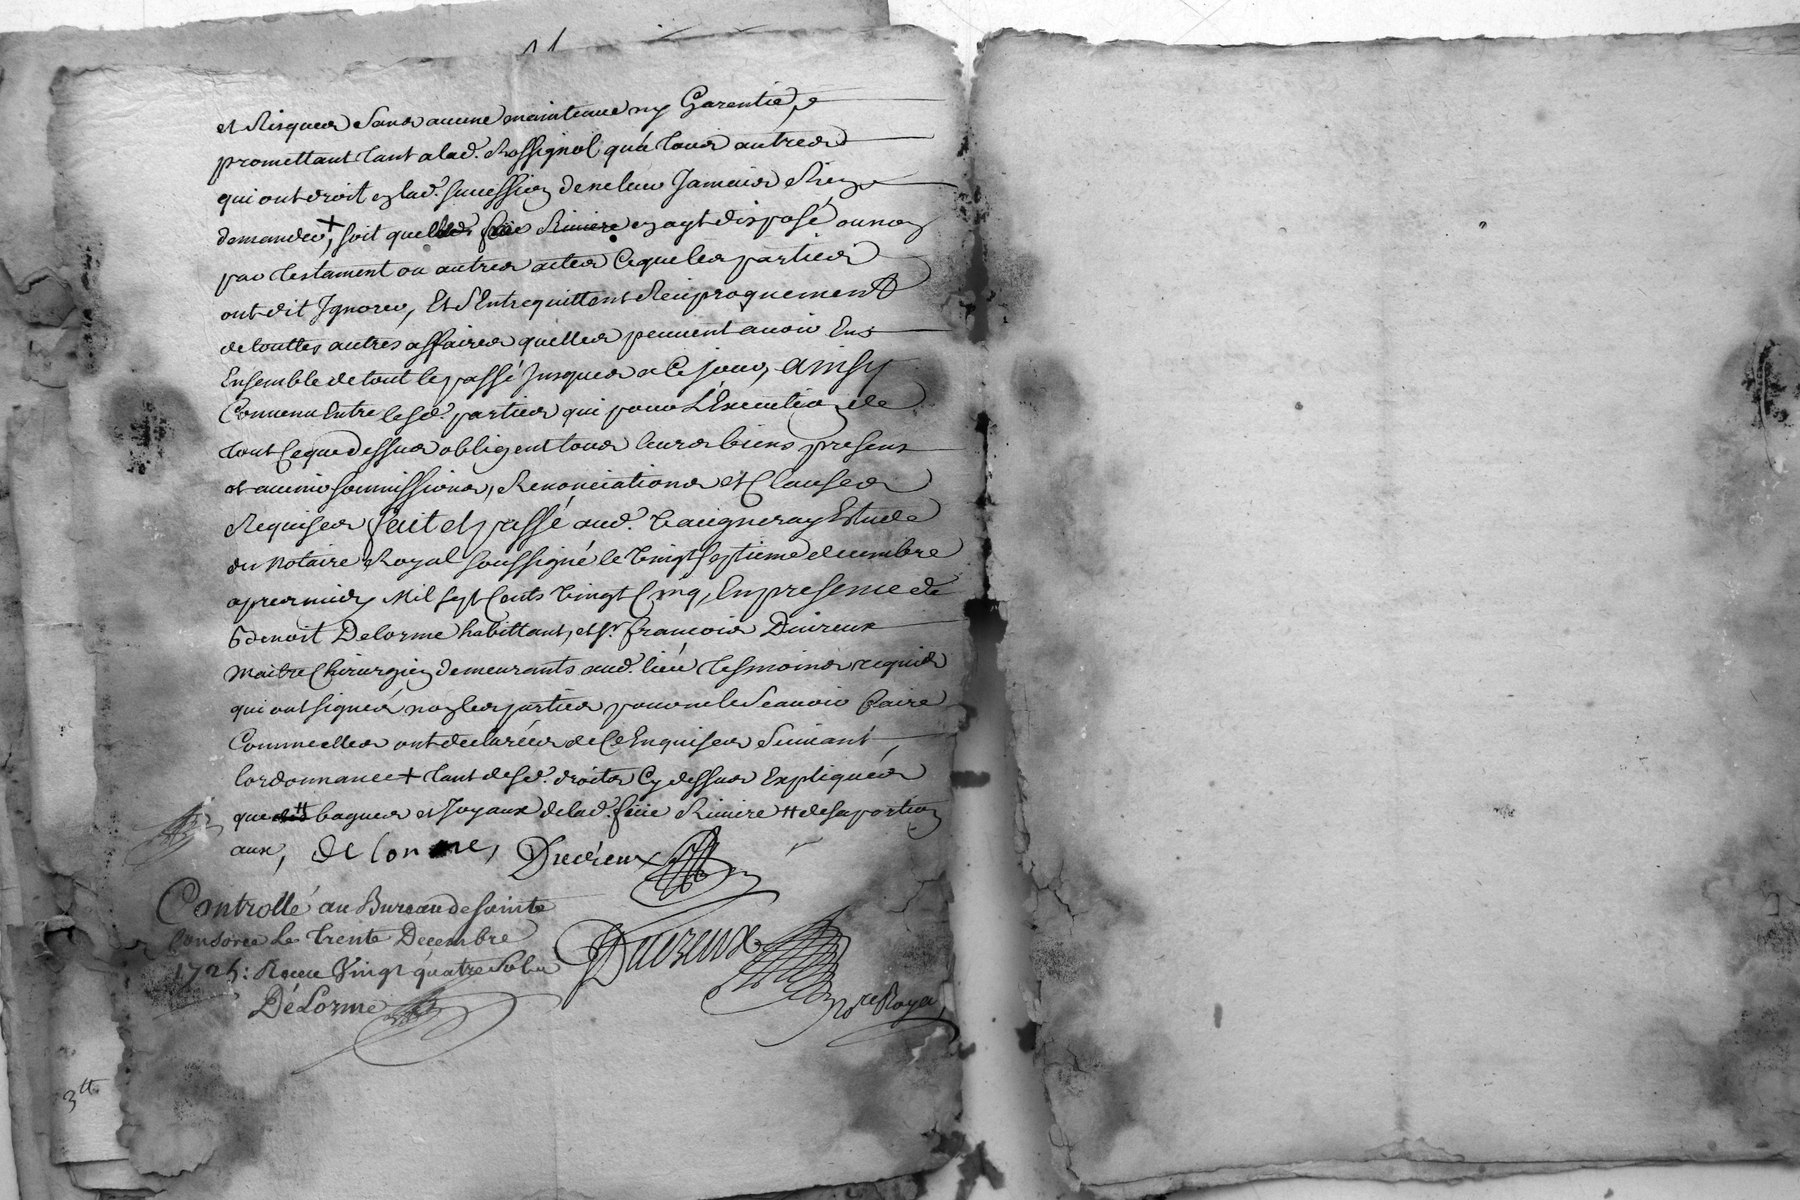 et Risques sans aucune maintenue ny Garentie,
promettant tant a lad. Rossignol qu'a tous autres
qui ont droit en lad. sucession de ne leur Jamais Rien
demander,+ soit que lad. feüe Riviere en ayt disposé ou non
par testament ou autres actes Ce que les parties
ont dit Ignorer, Et s'Entrequittent Reciproquement
de touttes autres affaires quelles peuvent avoir Eus
Ensemble de tout le passé Jusques a Ce jour, ainsy
Convenu Entre lesd. parties qui pour L'Execution de
tout Ce que dessus obligent tous leurs biens presens
et avenir soumissions, Renonciations et Clauses
Requises fait et passé aud. Vaugneray Estude
du Notaire Royal soussigné le vingt septieme decembre
apres midy Mil sept Cents vingt Cinq, En presence de
Benoit Delorme habittant, et sr. francois Duvreux
Maitre Chirurgien demeurants aud. lieu tesmoins requis
qui ont signés non les parties pour ne le sçavoir faire
Comme elles ont declarées de Ce Enquises suivant
lordonnance + tant desd. droits Cy dessus Expliqués
que bagues et Joyaux de lad. feüe Riviere # de sa portion
aux, de lorme, Duvreux
Controllé au Bureau de sainte
Consorce Le trente Decembre
1725: Receu Vingt quatre sols
DéLorme
Duvreux
No.re Royal
3tt